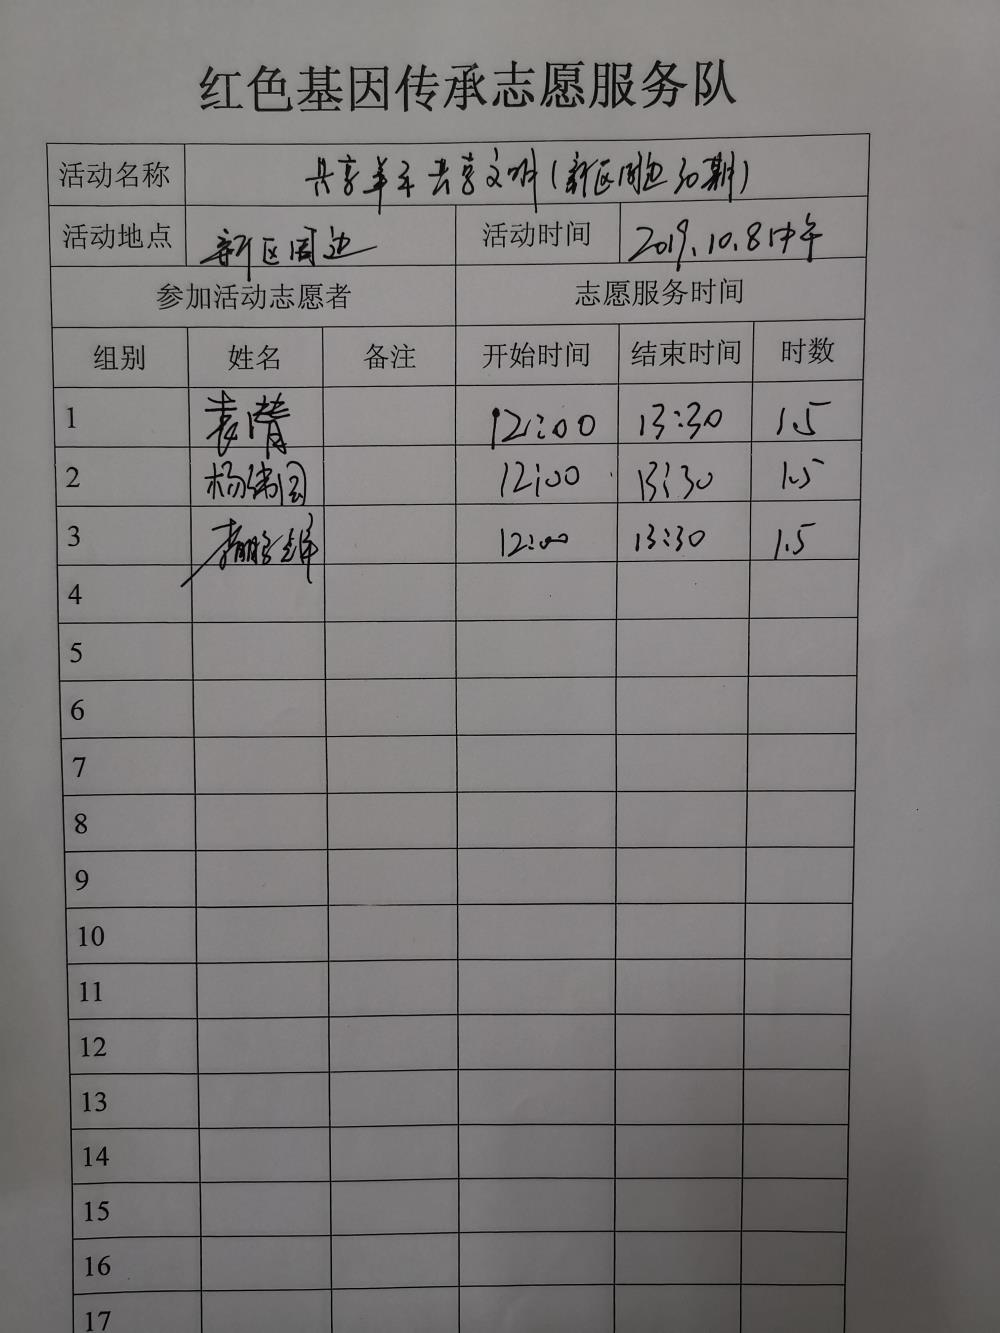 红色基因传承志愿服务队
活动名称 共享单车 共享文明(新区周边30期)
活动地点 新区周边 活动时间 2019.10.8中午
参加活动志愿者 志愿服务时间
组别 姓名 备注 开始时间 结束时间 时数
1 袁 12:00 13:30 1.5
2 杨伟国 12:00 13:30 1.5
3 12:00 13:30 1.5
4
5
6
7
8
9
10
11
12
13
14
15
16
17